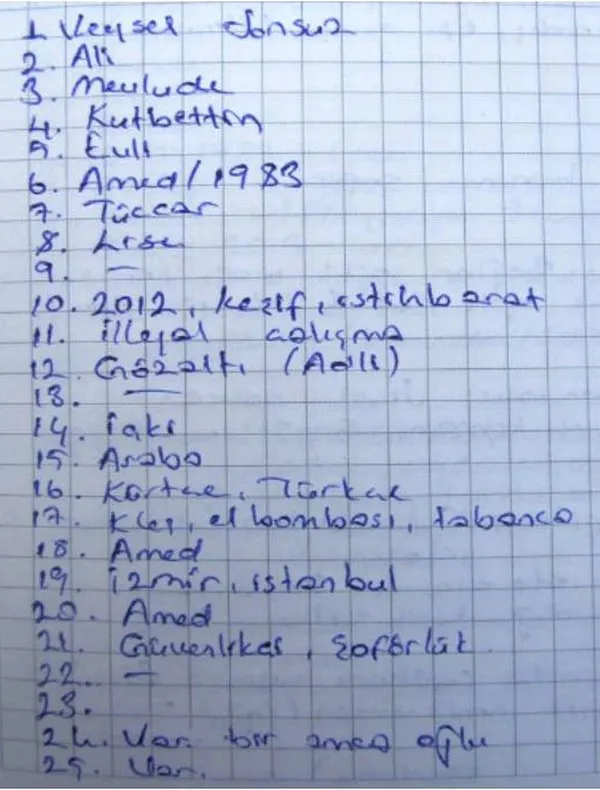 1. Veysel Sonsuz
2. Ali
3. Mevlude
4. Kutbettin
5. Evli
6. Amed/1983
7. Tüccar
8. Lise
9. —
10. 2012, keşif, istihbarat
11. illegal çalışma
12. Gözaltı (Adli)
13. —
14. iaki
15. Araba
16. Kürtçe, Türkçe
17. Kleş, el bombası, tabanca
18. Amed
19. izmir, istanbul
20. Amed
21. Güvenlikçi, şoförlük
22. —
23.
24. Var. bir amca oğlu
25. Var.